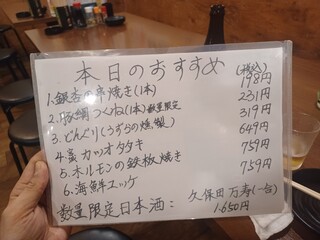 本日のおすすめ
(税込)
1.銀杏の串焼き(1本) 198円
2.豚網つくね(1本)数量限定 231円
3.どんぐり(うずらの燻製) 319円
4.カツオタタキ 649円
5.ホルモンの鉄板焼き 759円
6.海鮮ユッケ 759円
数量限定日本酒: 久保田 万寿(一合)
1.650円